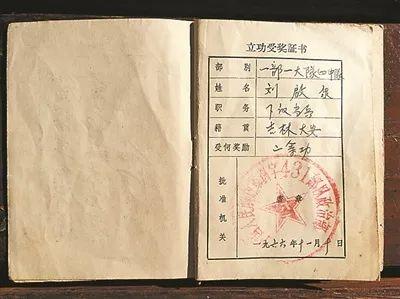 立功受奖证书
部别 一部一大队四中队
姓名 刘启
职务
籍贯 吉林大安
受何奖励 二等功
批准机关 盖章
431部队政治部
一九七六年十一月十日